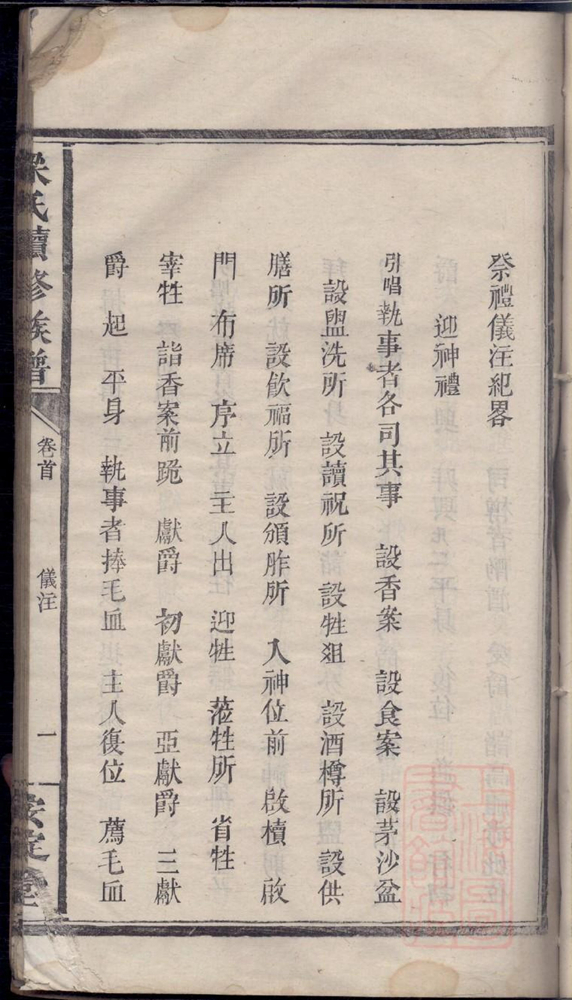 祭禮儀注紀畧
迎神禮
引唱執事者各司其事 設香案 設食案 設茅沙盆
設盥洗所 設讀祝所 設牲俎 設酒樽所 設供
膳所 設飲福所 設頒胙所 入神位前 啟櫝 啟
門 布席 序立 主人出 迎牲 蒞牲所 省牲
宰牲 詣香案前跪 獻爵 初獻爵 亞獻爵 三獻
爵 起 平身 執事者捧毛血 主人復位 薦毛血
氏續修族譜 卷首 儀注 一 安定